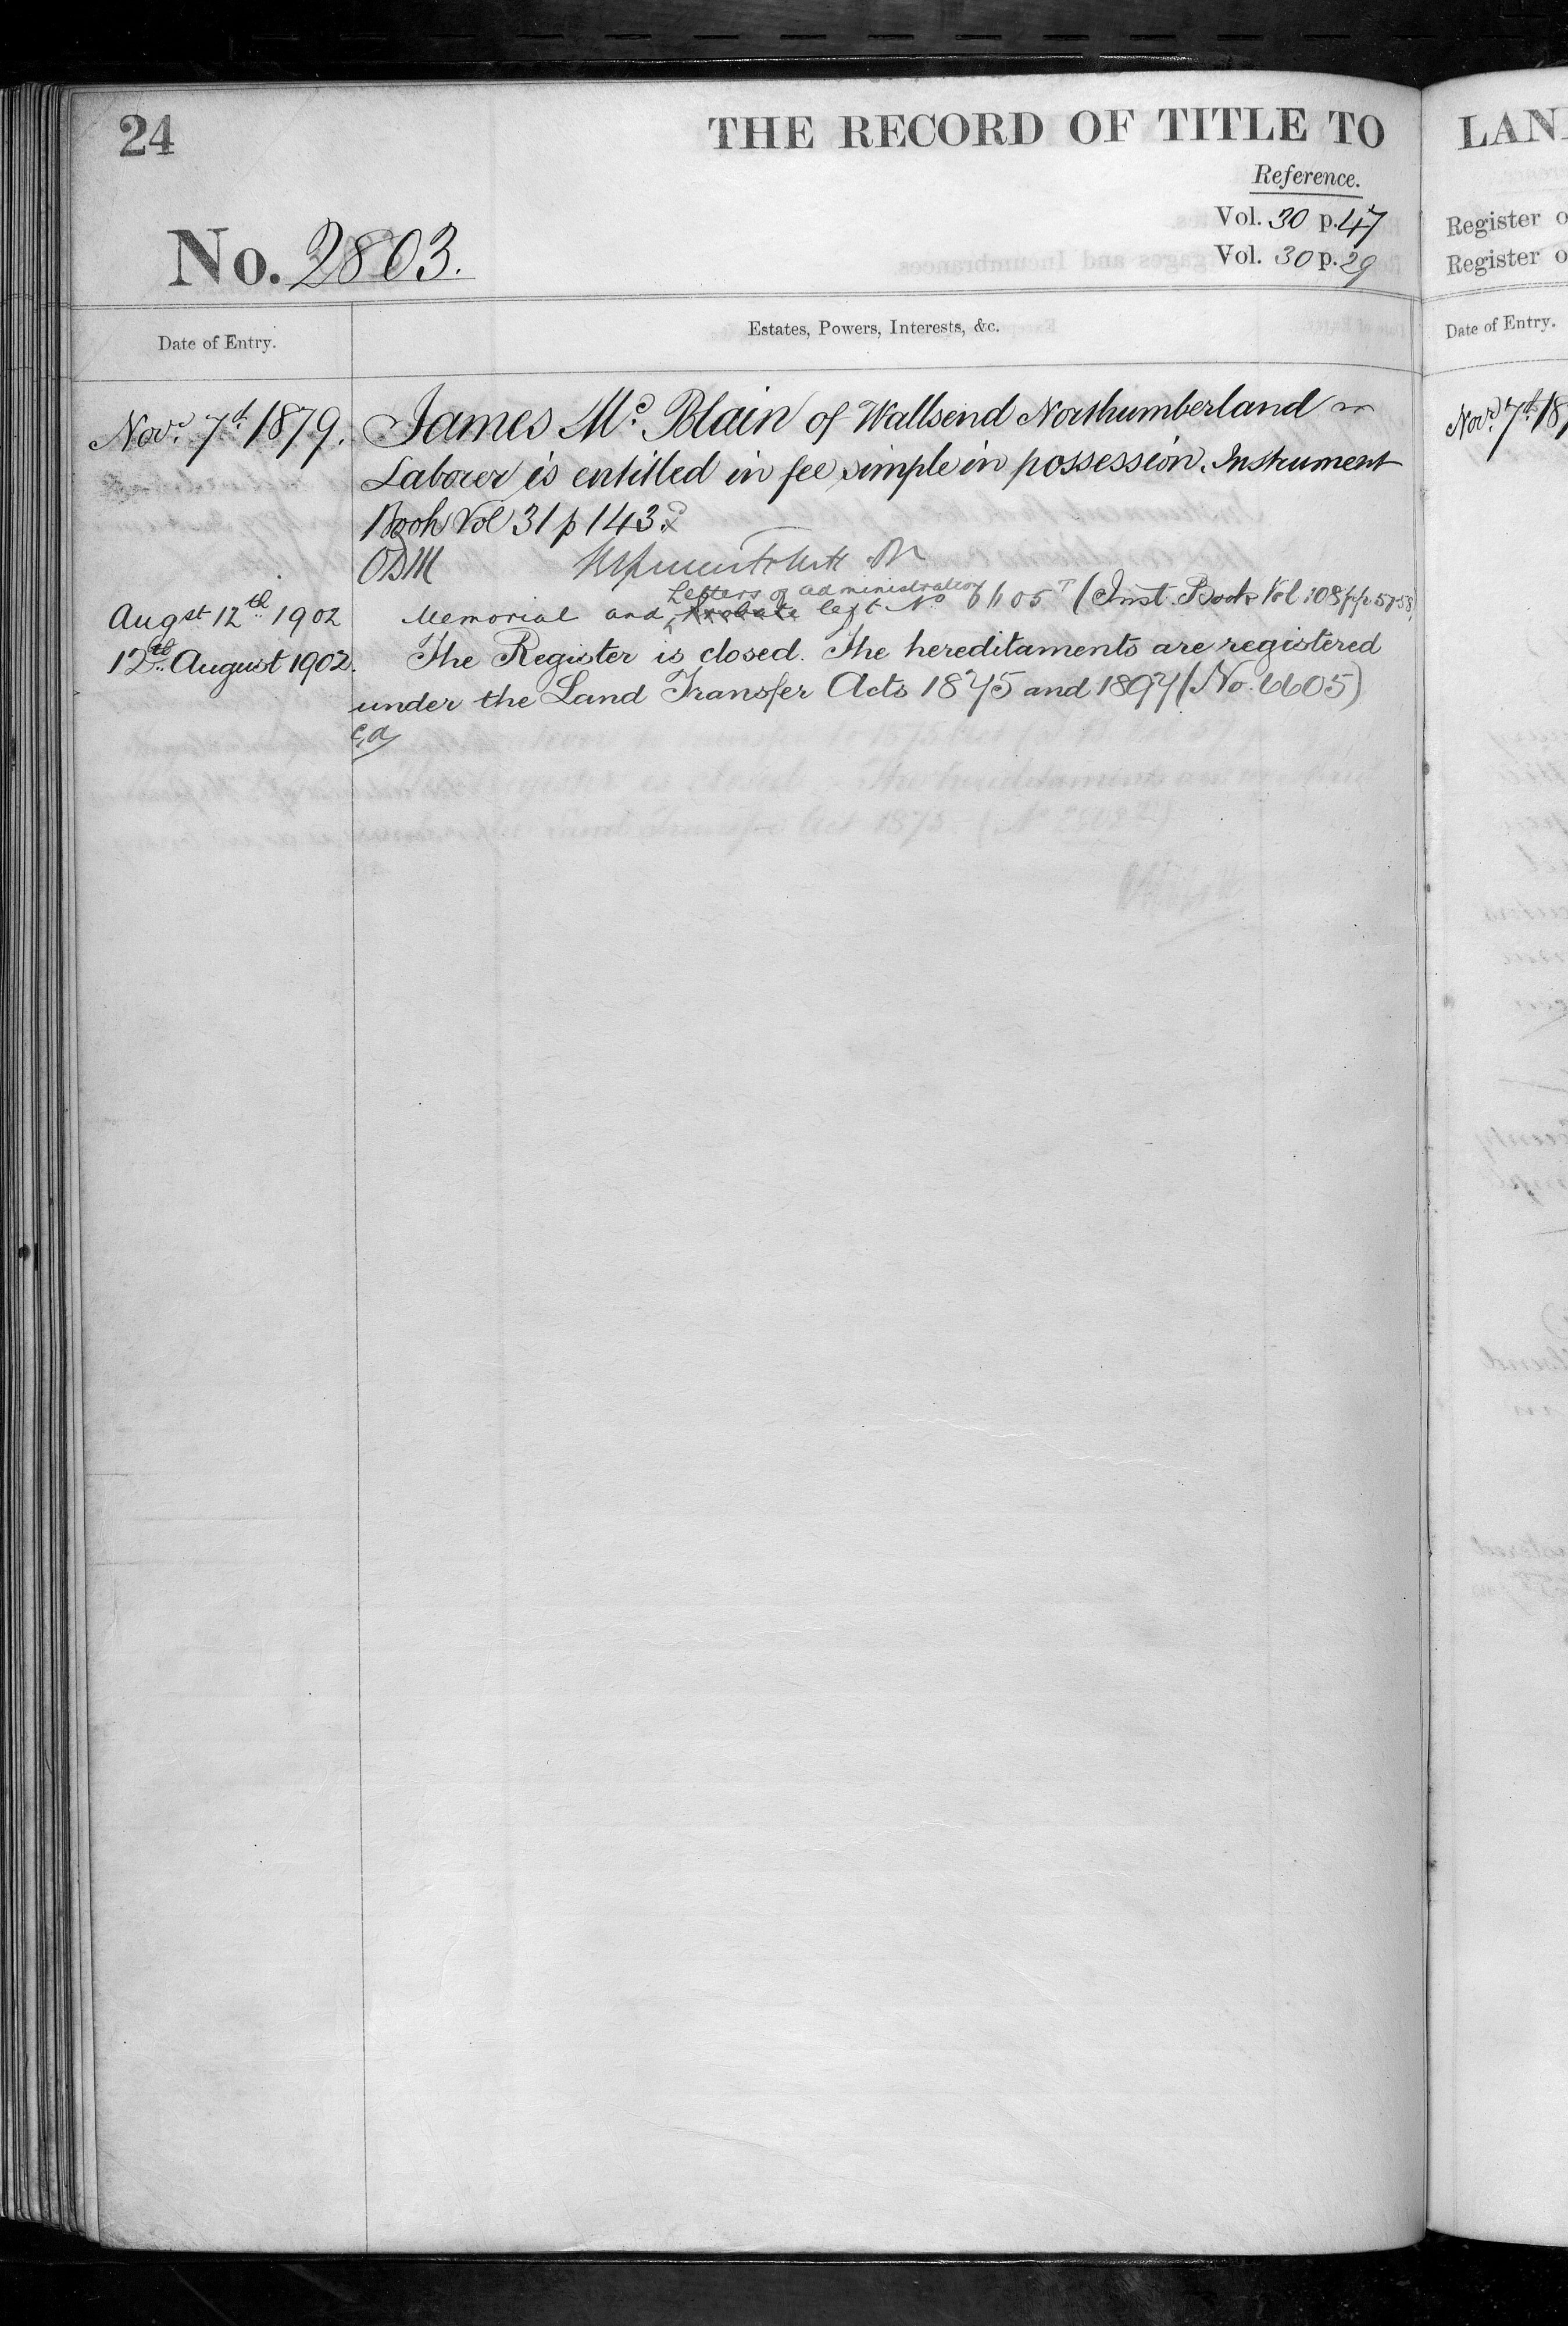 24
THE RECORD OF TITLE TO
Reference.
Vol. 30 p. 47
No. 2803.
Vol. 30 p. 29
Date of Entry.
Estates, Powers, Interests, &c.
Novr. 7th 1879. James Mc. Blain of Wallsend Northumberland
Laborer is entitled in fee simple in possession. Instrument
Book Vol 31 p 143.
Letters of administration
Augst 12th 1902 Memorial and Probate left No 6605 T (Inst. Book Vol 108 pp 57 58)
12th August 1902. The Register is closed. The hereditaments are registered
under the Land Transfer Acts 1875 and 1897 (No. 6605)
LAN
Register o
Register o
Date of Entry.
Novr. 7th 18